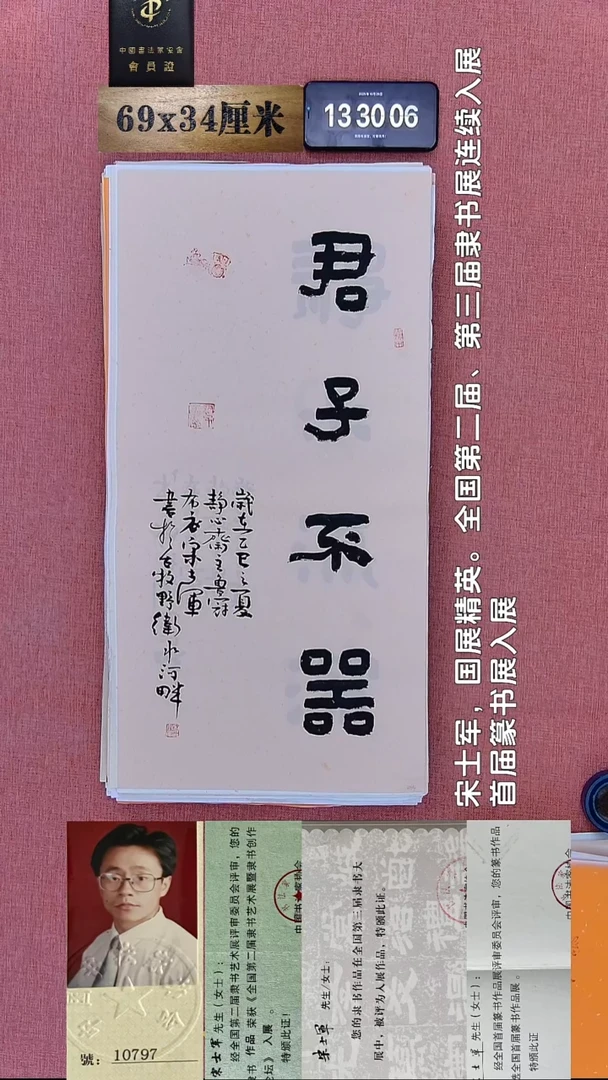 中國書法家協會
會員證
69x34厘米
13 30 06
君子不器
歲在乙巳之夏
靜心齋主
布衣宋士軍
書於古牧野衛水河畔
宋士军，国展精英。全国第二届、第三届隶书展连续入展
首届篆书展入展
10797
宋士军 先生（女士）：
经全国第二届隶书艺术展评审委员会评审，您的
隶书 作品 荣获《全国第二届隶书艺术展暨隶书创作
论坛》入展 。
特颁此证！
宋士軍 先生/女士：
您的隶书作品在全国第三届隶书大
展中，被评为入展作品，特颁此证。
士军 先生（女士）：
经全国首届篆书作品展评审委员会评审，您的篆书作品
全国首届篆书作品展 。
特颁此证